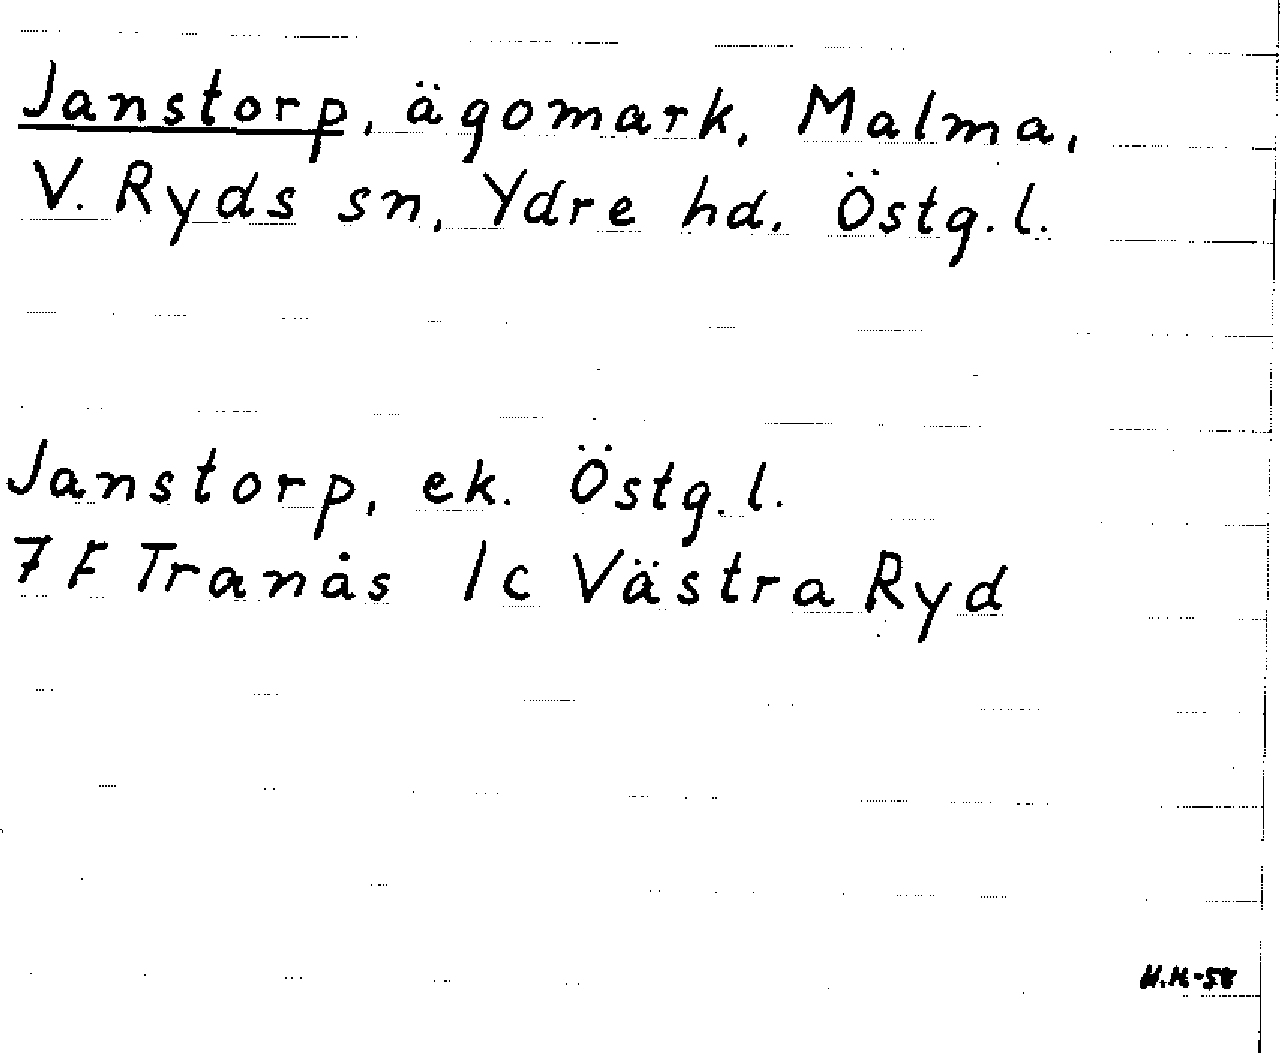 Janstorp, ägomark, Malma,
V. Ryds sn, Ydre hd. Östg. l.
Janstorp, ek. Östg. l.
7 F Tranås 1c Västra Ryd